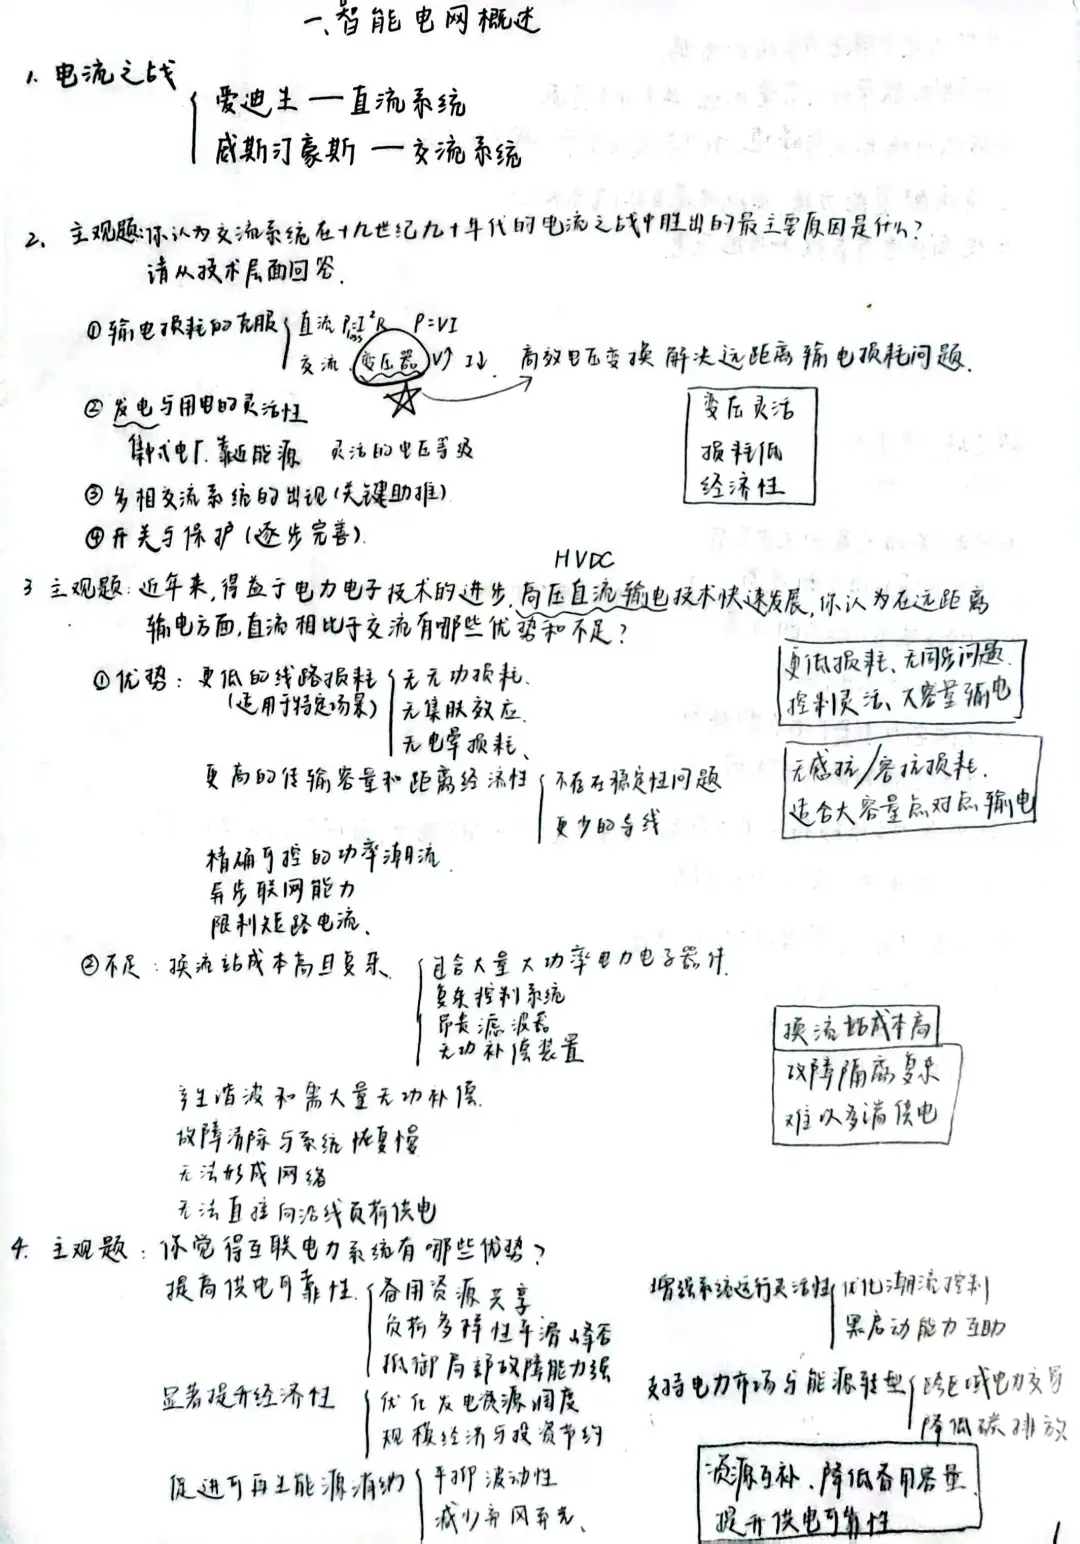 一、智能电网概述
1. 电流之战
爱迪生 — 直流系统
威斯汀豪斯 — 交流系统
2、主观题:你认为交流系统在十九世纪九十年代的电流之战中胜出的最主要原因是什么?
请从技术层面回答.
①输电损耗的克服
直流 P_loss=I²R P=VI
交流 变压器 V↑ I↓. 高效电压变换 解决远距离输电损耗问题.
②发电与用电的灵活性
集中式电厂.靠近能源 灵活的电压等级
变压灵活
损耗低
经济性
③多相交流系统的出现(关键助推)
④开关与保护(逐步完善).
HVDC
3 主观题:近年来,得益于电力电子技术的进步,高压直流输电技术快速发展,你认为在远距离
输电方面,直流相比于交流有哪些优势和不足?
①优势:更低的线路损耗
(适用于特定场景)
无无功损耗.
无集肤效应.
无电晕损耗、
更低损耗、无同步问题.
控制灵活、大容量输电
更高的传输容量和距离经济性
不存在稳定性问题
更少的导线
无感抗/容抗损耗.
适合大容量点对点输电
精确可控的功率潮流.
异步联网能力
限制短路电流、
②不足:换流站成本高且复杂
包含大量大功率电力电子器件.
复杂控制系统
昂贵滤波器
无功补偿装置
换流站成本高
故障隔离复杂
难以多端供电
产生谐波和需大量无功补偿.
故障清除与系统恢复慢
无法形成网络
无法直接向沿线负荷供电
4. 主观题:你觉得互联电力系统有哪些优势?
提高供电可靠性.
备用资源共享
负荷多样性平滑峰谷
抵御局部故障能力强
显著提升经济性
优化发电资源调度
规模经济与投资节约
促进可再生能源消纳
平抑波动性
减少弃风弃光、
增强系统运行灵活性
优化潮流控制
黑启动能力互助
支持电力市场与能源转型
跨区域电力交易
降低碳排放
资源互补、降低备用容量
提升供电可靠性
1